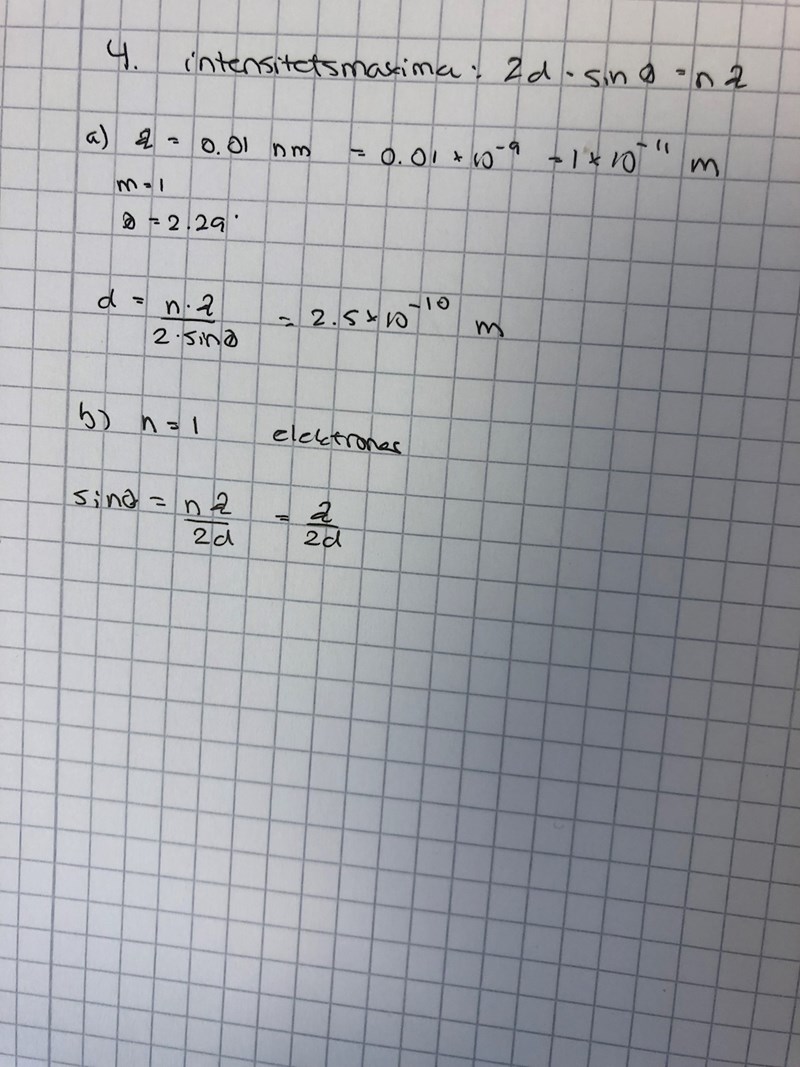 4. intensitetsmaxima: 2d · sin θ = n λ
a) λ = 0.01 nm = 0.01 × 10⁻⁹ = 1 × 10⁻¹¹ m
m = 1
θ = 2.29°
d = n · λ / 2 · sin θ = 2.5 × 10⁻¹⁰ m
b) n = 1 elektroner
sin θ = n λ / 2d = λ / 2d